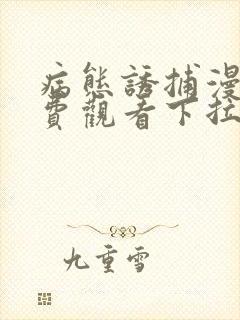 病態誘捕漫
費觀看下拉
九重雪